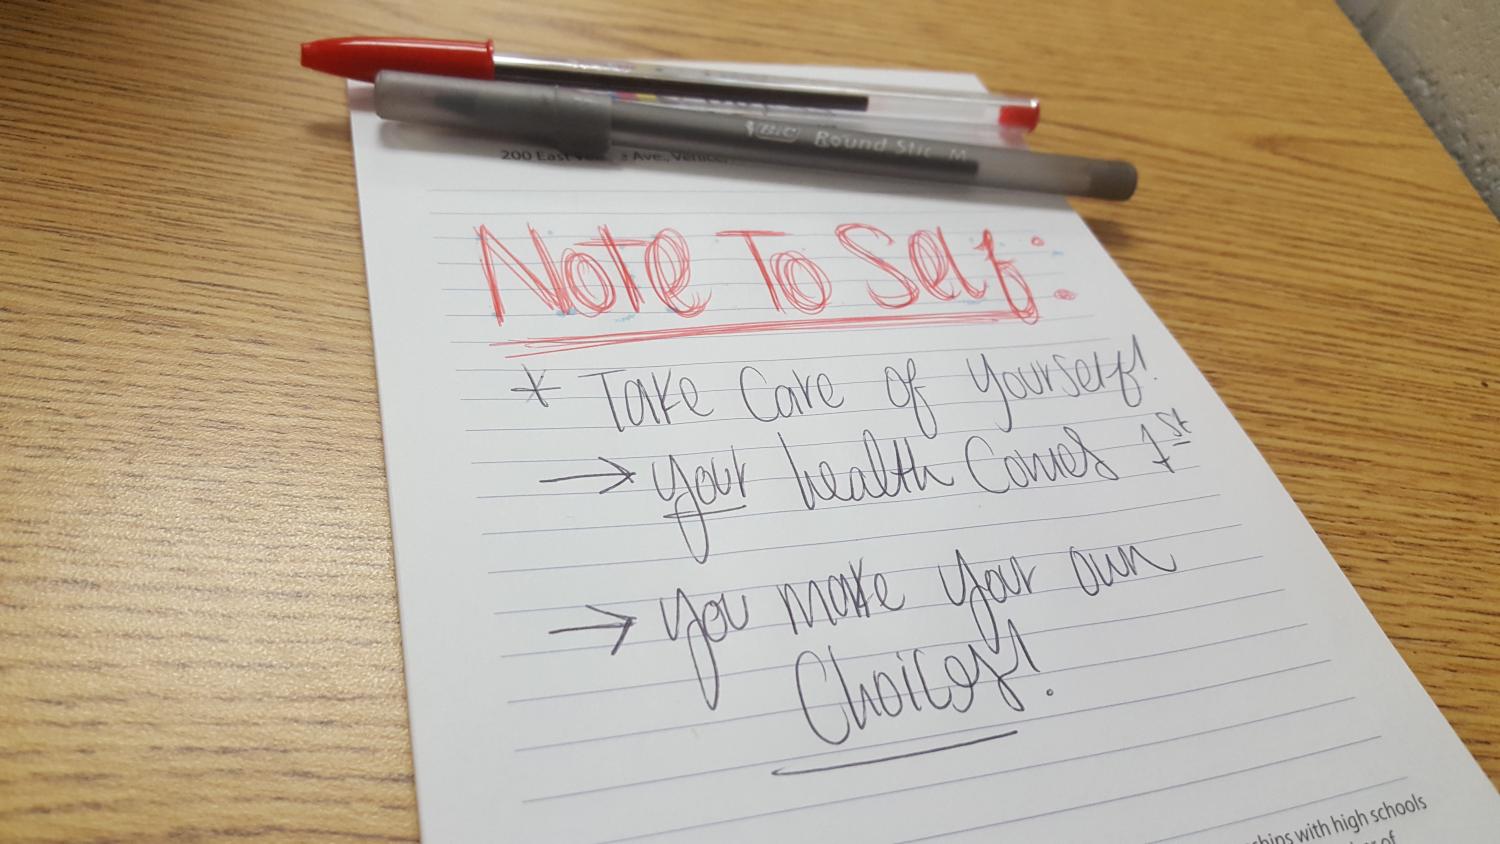 BIC Round Stic M
200 East Ave.,
Note To Self:
* Take Care of yourself!
→ your health Comes 1st
→ you make your own
Choices!
with high schools
of